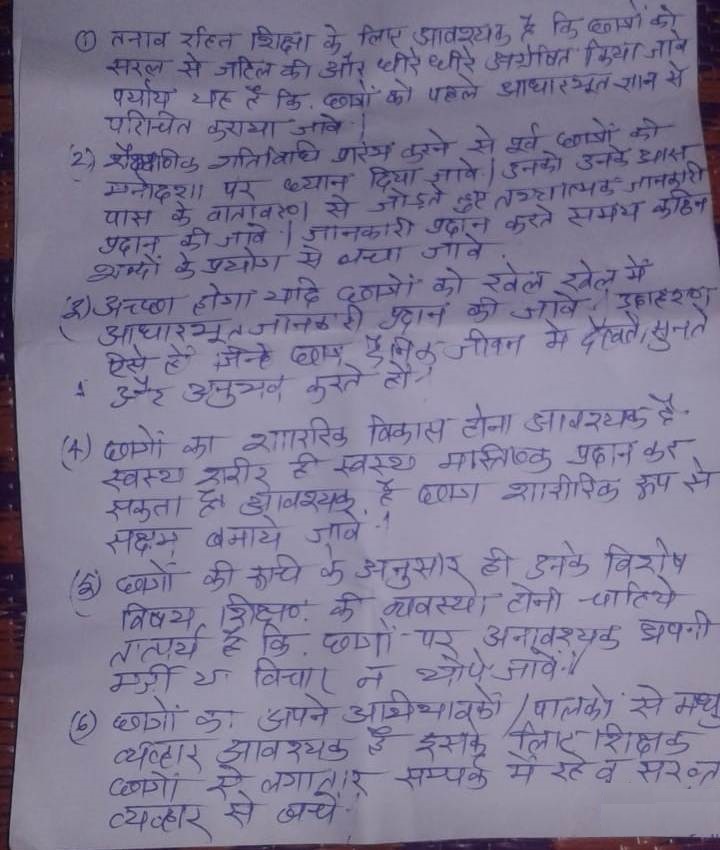 ① तनाव रहित शिक्षा के लिए आवश्यक है कि छात्रों को
सरल से जटिल की और धीरे धीरे अग्रेषित किया जावे
पर्याय यह है कि. छात्रों को पहले आधारभूत ज्ञान से
परिचित कराया जावे।
(2) शैक्षणिक गतिविधि प्रारंभ करने से पूर्व छात्रों को
मनोदशा पर ध्यान दिया जावे। उनको उनके आस
पास के वातावरण से जोड़ते हुए तथ्यात्मक जानकारी
प्रदान की जावे। जानकारी प्रदान करते समय कठिन
शब्दों के प्रयोग से बचा जावे
(3) अच्छा होगा यदि छात्रों को खेल खेल में
आधारभूत जानकारी प्रदान की जावे। उदाहरण
ऐसे हों जिन्हे छात्र दैनिक जीवन मे देखते, सुनते
और अनुभव करते हो।
(4) छात्रों का शारीरिक विकास होना आवश्यक है
स्वस्थ शरीर ही स्वस्थ मस्तिष्क प्रदान कर
सकता है आवश्यक है छात्र शारीरिक रूप से
सक्षम बनाये जावे।
(5) छात्रों की रूचि के अनुसार ही उनके विशेष
विषय शिक्षण की व्यवस्था होनी चाहिये
तात्पर्य है कि. छात्रों पर अनावश्यक अपनी
मर्जी व विचार न थोपे जावें।
(6) छात्रों का अपने अभिभावको/पालको से मधु
व्यव्हार आवश्यक है इसके लिए शिक्षक
छात्रों से लगातार सम्पर्क में रहे व सख्त
व्यव्हार से बचे।